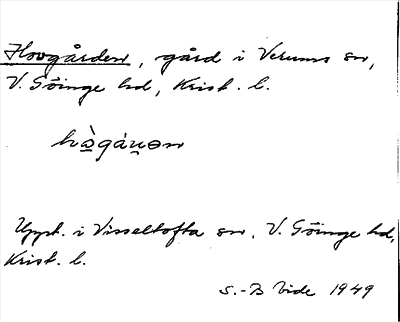 Hovgården, gård i Verums sn,
V. Göinge hd, Krist. l.
Uppt. i Visseltofta sn, V. Göinge hd,
Krist. l.
S.-B Vide 1949